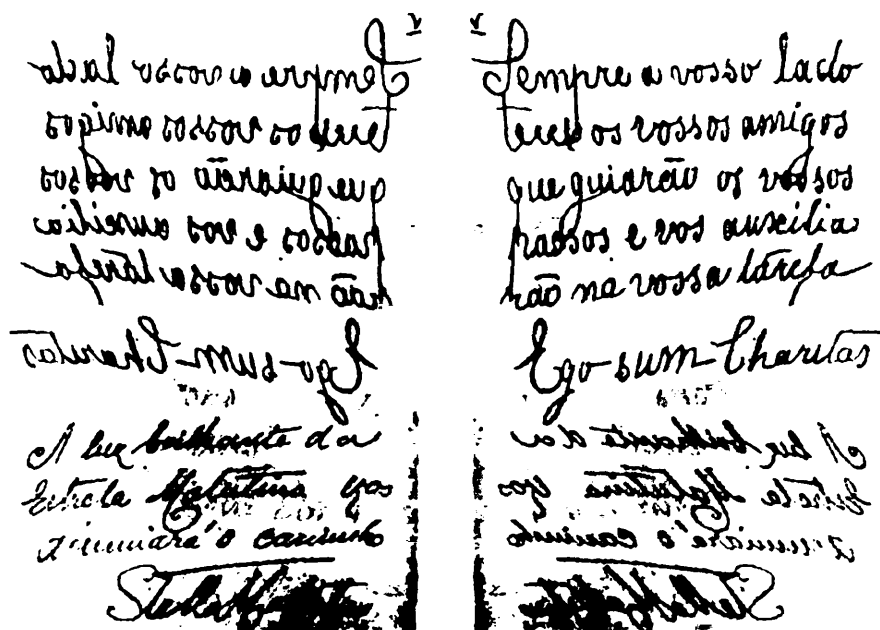 Sempre a vosso lado
tereis os vossos amigos
que guiarão os vossos
passos e vos auxilia
rão na vossa tarefa
Ego sum Charitas
A luz brilhante da
Estrela Matutina vos
o caminho
Stella